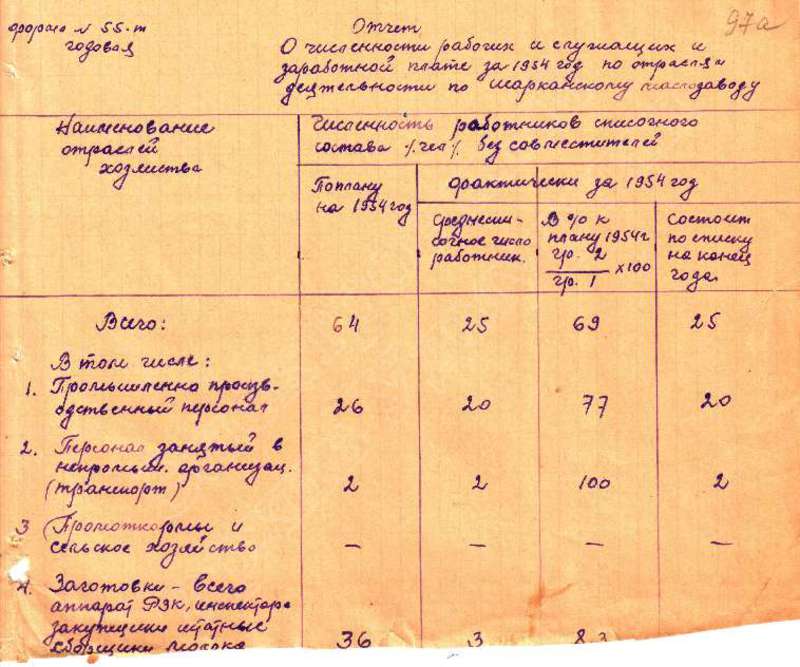 форма № 55-т
годовая
97а
Отчет
О численности рабочих и служащих и
заработной плате за 1954 год по отраслям
деятельности по Шарканскому маслозаводу
Наименование
отраслей
хозяйства
Численность работников списочного
состава %чел% без совместителей
По плану
на 1954 год
фактически за 1954 год
Среднеспи-
сочное число
работник.
В % к
плану 1954 г
гр. 2
гр. 1 х100
Состоит
по списку
на конец
года.
Всего: 64 25 69 25
В том числе:
1. Промышленно произв-
одственный персонал 26 20 77 20
2. Персонал занятый в
непромыш. организац.
(транспорт) 2 2 100 2
3 Промоткормы и
сельское хозяйство — — — —
4. Заготовки - всего
аппарат РЗК, инспектора
закупщики штатные
сборщики молока 36 3 8,3